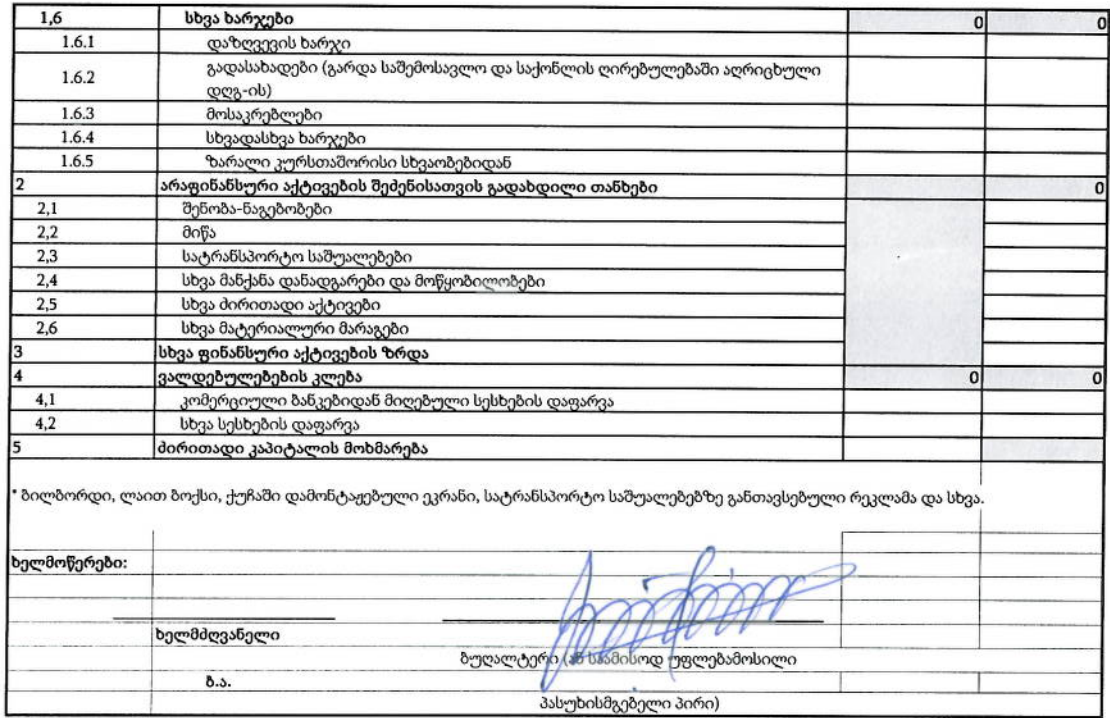 1,6 სხვა ხარჯები 0 0
1.6.1 დაზღვევის ხარჯი
1.6.2 გადასახადები (გარდა საშემოსავლო და საქონლის ღირებულებაში აღრიცხული
დღგ-ის)
1.6.3 მოსაკრებლები
1.6.4 სხვადასხვა ხარჯები
1.6.5 ზარალი კურსთაშორისი სხვაობებიდან
2 არაფინანსური აქტივების შეძენისათვის გადახდილი თანხები 0
2,1 შენობა-ნაგებობები
2,2 მიწა
2,3 სატრანსპორტო საშუალებები
2,4 სხვა მანქანა დანადგარები და მოწყობილობები
2,5 სხვა ძირითადი აქტივები
2,6 სხვა მატერიალური მარაგები
3 სხვა ფინანსური აქტივების ზრდა
4 ვალდებულებების კლება 0 0
4,1 კომერციული ბანკებიდან მიღებული სესხების დაფარვა
4,2 სხვა სესხების დაფარვა
5 ძირითადი კაპიტალის მოხმარება
* ბილბორდი, ლაით ბოქსი, ქუჩაში დამონტაჟებული ეკრანი, სატრანსპორტო საშუალებებზე განთავსებული რეკლამა და სხვა.
ხელმოწერები:
ხელმძღვანელი
ბუღალტერი (ან საამისოდ უფლებამოსილი
ბ.ა.
პასუხისმგებელი პირი)